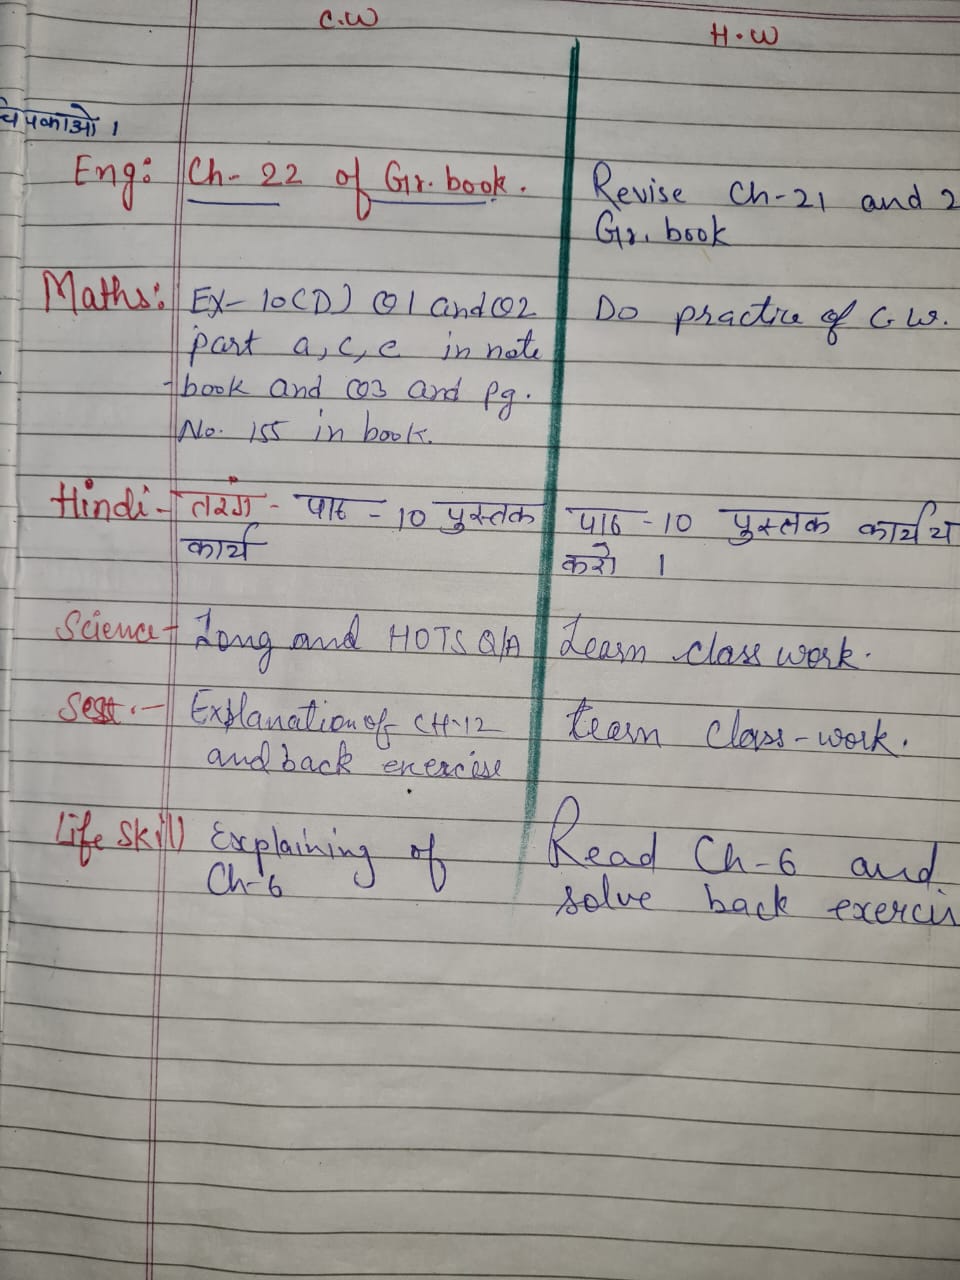 C.W
H.W
चिपकाओ ।
Eng: Ch- 22 of Gr. book.
Revise Ch-21 and 2
Gr. book
Maths: Ex- 10(D) Q1 and Q2
part a, c, e in note
-book and Q3 and pg.
No. 155 in book.
Do practice of C.W.
Hindi - तरंग - पाठ - 10 पुस्तक
कार्य
पाठ - 10 पुस्तक कार्य
करो ।
Science - Long and HOTS Q/A
Learn class work.
Sst. - Explanation of CH-12
and back exercise
Learn class-work.
Life Skill Explaining of
Ch-6
Read Ch-6 and
solve back exercis